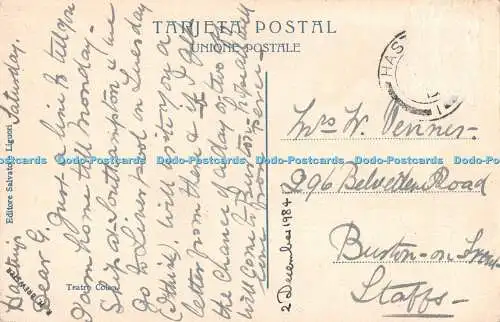 TARJETA POSTAL
UNIONE POSTALE
Hastings Saturday.
Dear G. Just a line to tell you
I am home till Monday -
Ship at Southampton & we
go to Liverpool on Tuesday
(I think). Will write you a
letter from there & if I get
the chance of a day or two off
will come to Burton.
love
Teatro Colon
Editore Salvatore Liguori
HAS
Mrs W. Penner
296 Belvedere Road
Burton-on-Trent
Staffs-
2 December 1984
Dodo-Postcards Dodo-Postcards Dodo-Postcards Dodo-Postcards Dodo-Postcards